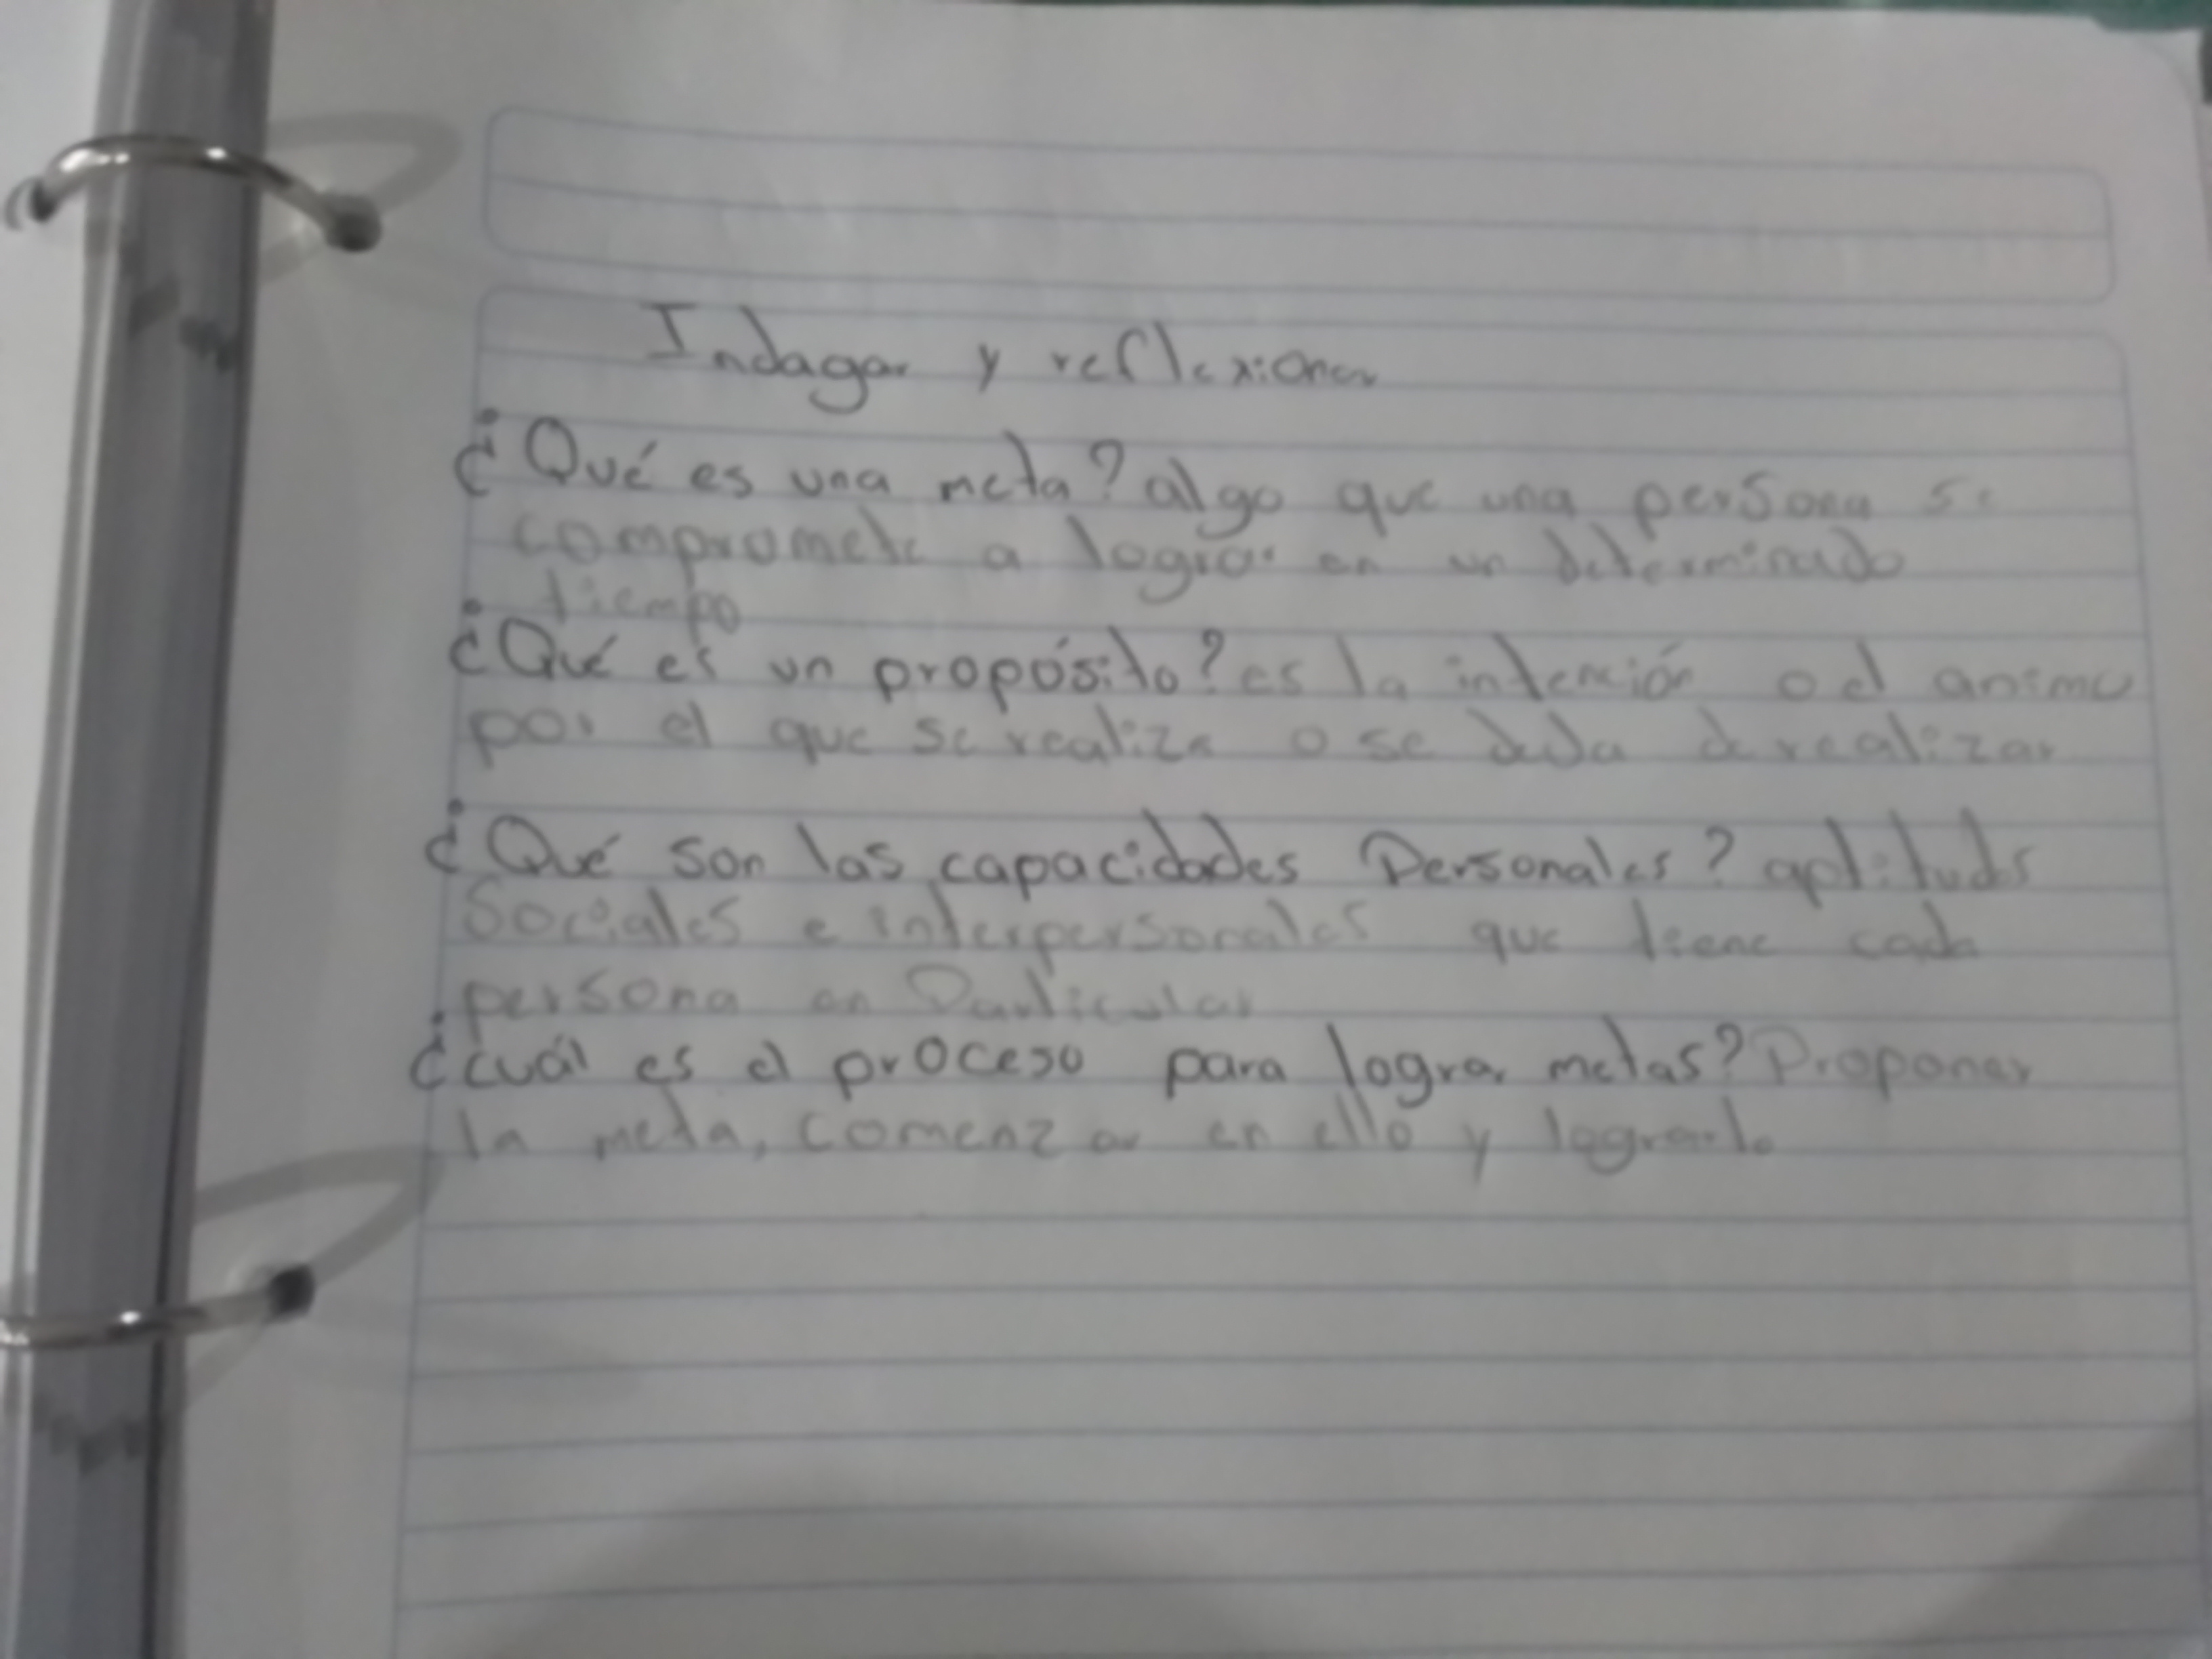 Indagar y reflexionar
¿Qué es una meta? algo que una persona se
compromete a lograr en un determinado
tiempo
¿Qué es un propósito? es la intención o el animo
por el que se realiza o se de realizar
¿Qué son las capacidades Personales? aptitudes
Sociales e interpersonales que tiene cada
persona en Particular
¿cuál es el proceso para lograr metas? Proponer
la meta, comenzar en ello y lograrlo